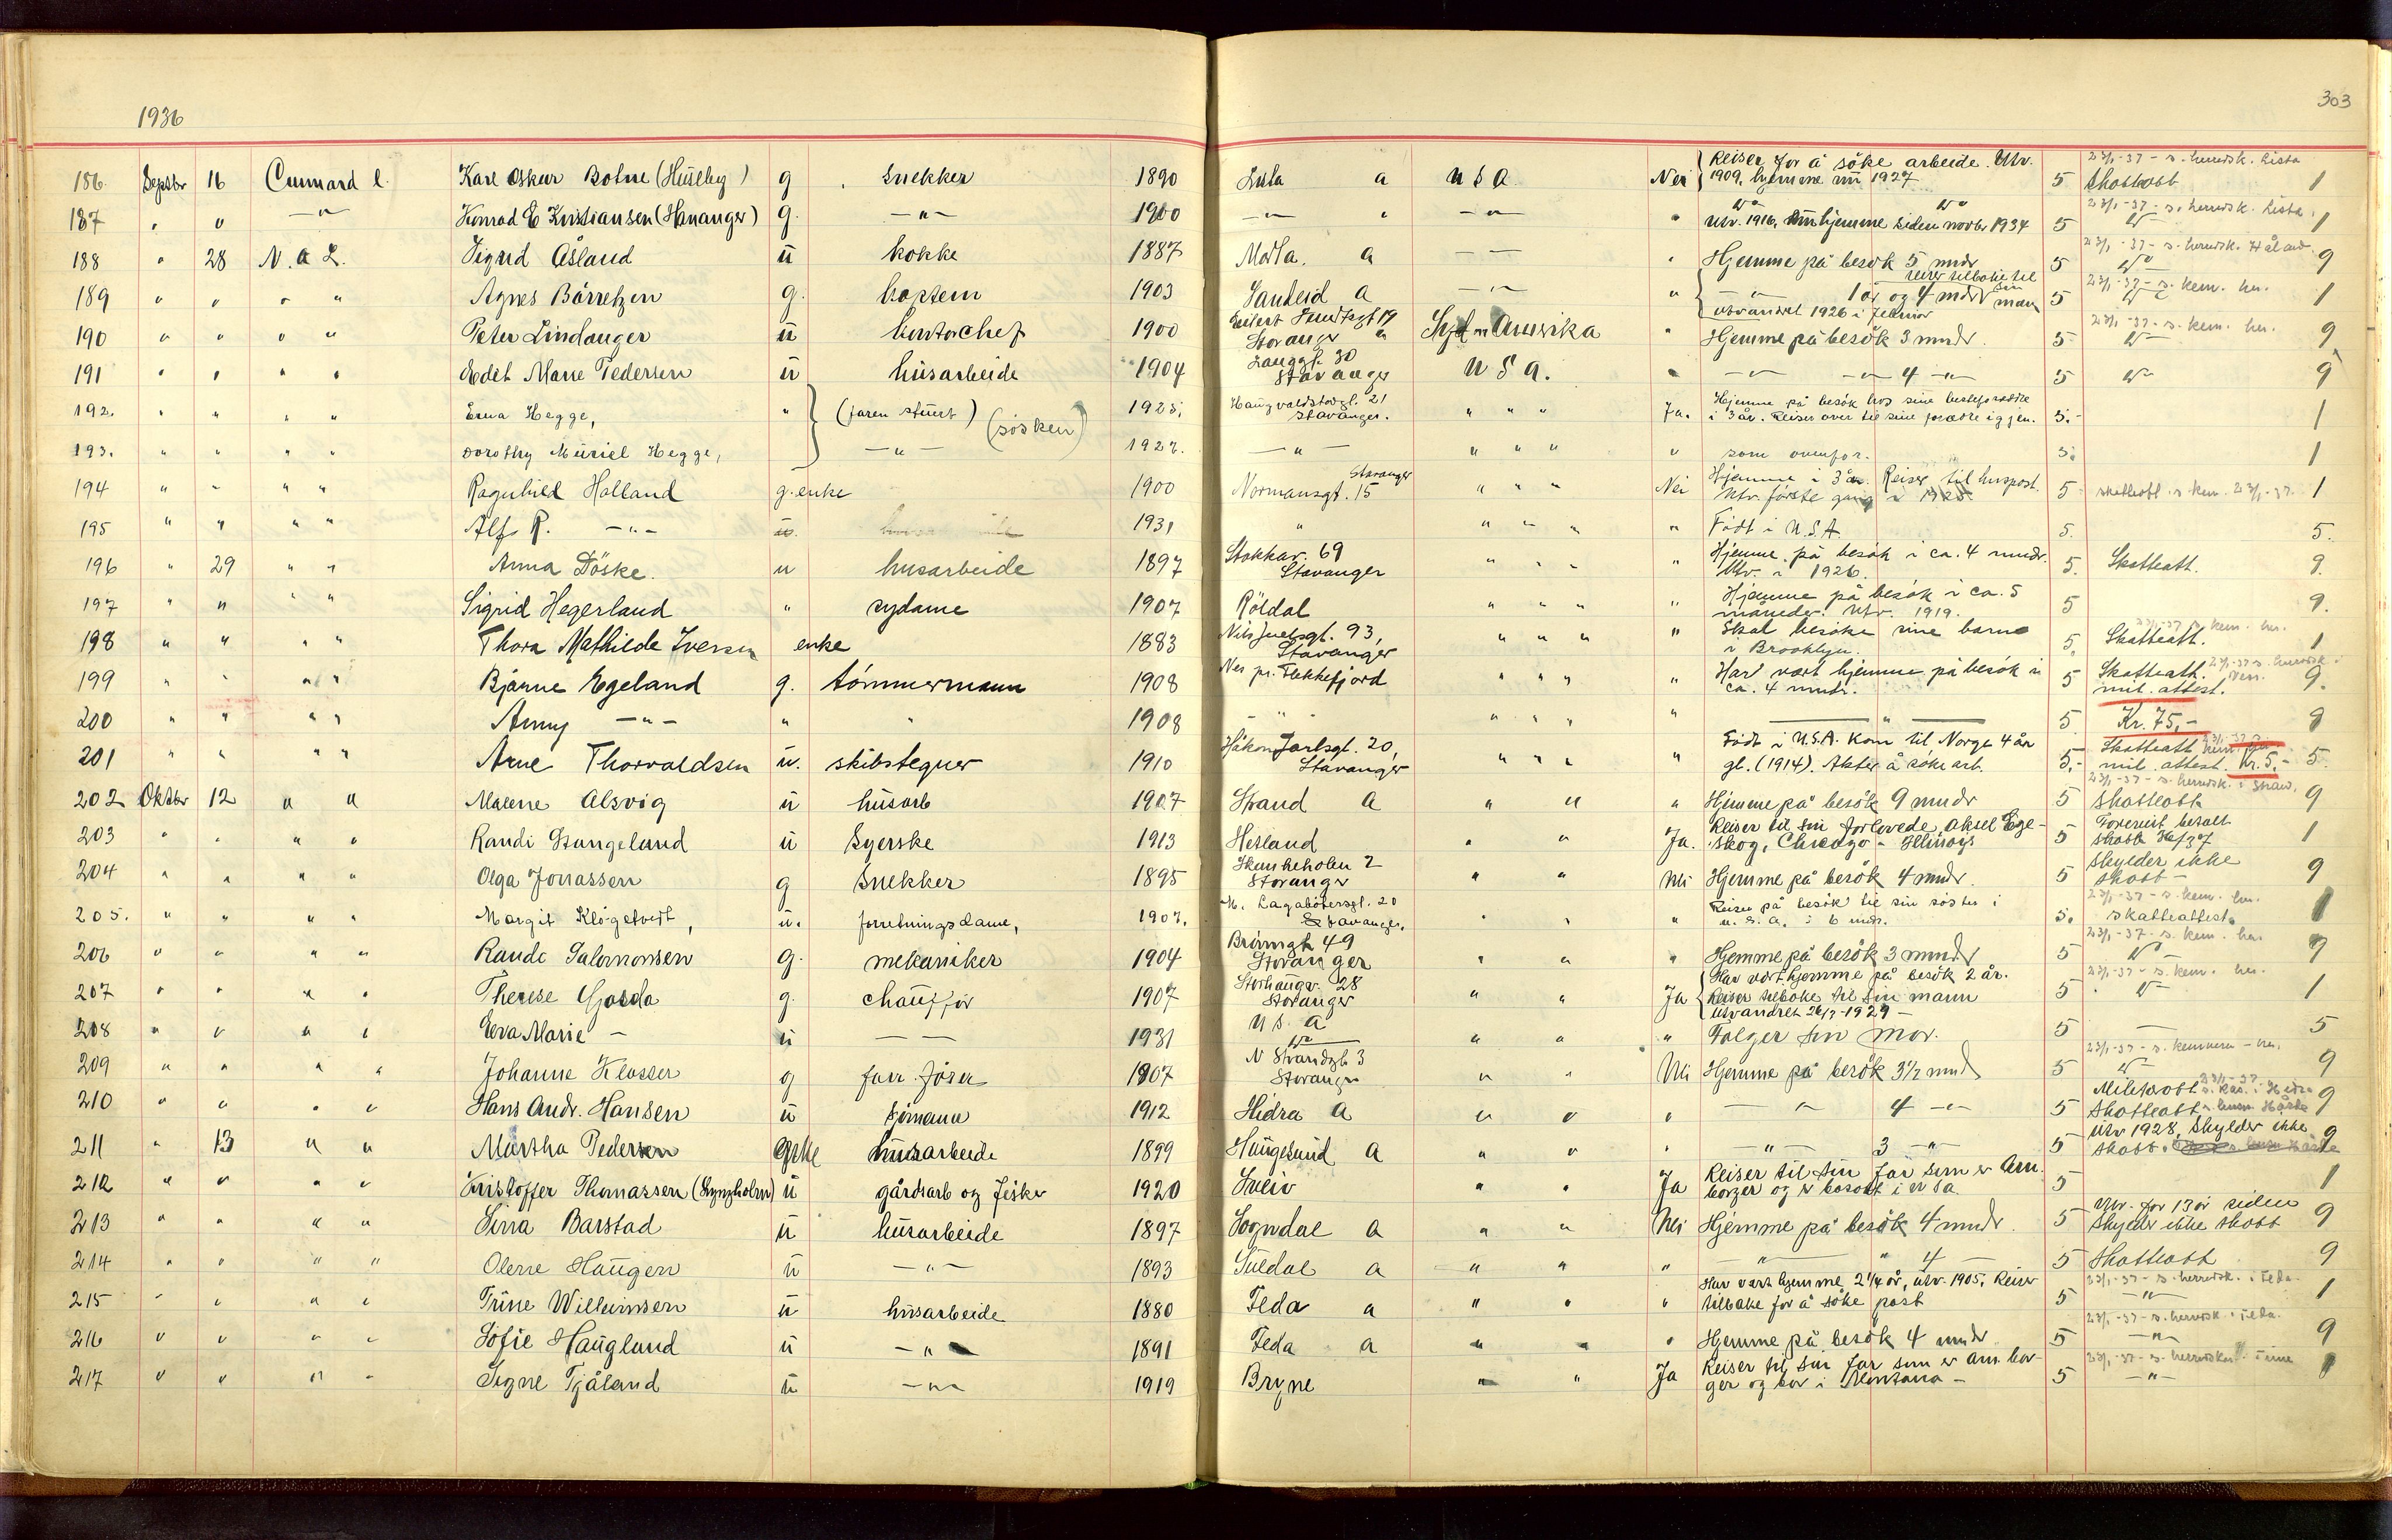 1936
303
186 Septbr 16 Cunnard l. Karl Oskar Botne (Huseby) g snekker 1890 Lista a U S A. Nei Reiser for å söke arbeide. Utv. 1909, hjemme nu 1927 5 23/1-37 - s. herredsk. Lista Skatteatt 1
187 " " —"— Konrad E Kristiansen (Hananger) g. —"— 1900 —"— " —"— " Utv. 1916, hjemme siden novbr 1934 5 23/1-37 - s. herredsk. Lista. 1
188 " 28 N. a L. Sigrid Åsland u kokke 1887 Mosta. a —— " Hjemme på besök 5 mndr 5 23/1-37 - s. herredsk. Håland 9
189 " " " " Agnes Börretzen g. kaptein 1903 Sandeid a —"— " —"— 1 år og 4 mndr reiser tilbake til sin mann utvandret 1926 i februar 5 23/1-37 - s. kem. her. 1
190 " " " " Peter Lindanger u kontorchef 1900 Eilert Sundtsgt 19 Stavanger a Syd Amerika " Hjemme på besök 3 mndr. 5 23/1-37 - s. kem. her. 9
191 " " " " Edit Marie Pedersen u husarbeide 1904 Langgt. 30 Stavanger U S A. " —"— —"— 4 —"— 5 9
192. " " " " Erna Hegge, " (faren stuert) (sösken) 1925. Haugvaldstadgt. 21 Stavanger. " " " Ja. Hjemme på besök hos sine besteforeldre i 3 år. Reiser over til sine foreldre igjen. 5.- 1
193. " " " " Dorothy Muriel Hegge, —"— 1927. —"— " " " " som ovenfor. 5. 1
194 " " " " Ragnhild Holland g. enke 1900 Normansgt. 15 Stavanger " " " Nei Hjemme i 3 år. Reiser til huspost. Utv. förste gang i 1925 5 skatteatt. s. kem. 23/1-37. 1
195 " " " " Alf R. —"— u. 1931 " " " " " Född i U.S.A 5. 5.
196 " 29 " " Anna Döske. u husarbeide 1897 Stokkav. 69 Stavanger " " " " Hjemme på besök i ca. 4 mndr. Utv. i 1926. 5. Skatteatt. 9.
197 " " " " Sigrid Hegerland " sydame 1907 Röldal " " " " Hjemme på besök i ca. 5 måneder. Utv. 1919. 5 9.
198 " " " " Thora Mathilde Iversen enke 1883 Nils Juelsgt. 93, Stavanger " " " " Skal besöke sine barn i Brooklyn. 5. 23/1-37 s. kem. her. Skatteatt. 1
199 " " " " Bjarne Egeland g. tömmermann 1908 Nes pr. Flekkefjord " " " " Har vært hjemme på besök i ca. 4 mndr. 5 Skatteatt. 23/1-37 s. herredsk. i Nes. mil. attest. 9.
200 " " " " Anny —"— " " 1908 " " " " " " —— " —— 5 Kr. 75,- 9
201 " " " " Arne Thorvaldsen u. skibstegner 1910 Håkon Jarlsgt. 20, Stavanger " " " " Född i U.S.A. kom til Norge 4 år gl. (1914). Akter å söke arb. 5,- Skatteatt 23/1-37 s. kem. her. mil. attest. Kr. 5,- 5.
202 Oktbr 12 " " Malene Alsvig u husarb 1907 Strand a " " " Hjemme på besök 9 mndr 5 23/1-37 - s. herredsk. i Strand. Skatteatt 9
203 " " " " Randi Stangeland u Syerske 1913 Hetland " " Ja. Reiser til sin forlovede, Aksel Egeskog, Chicago - Illinoys 5 Forerent betalt skatt 36/37 1
204 " " " " Olga Jonassen g Snekker 1895 Skankeholen 2 Stavanger " " Nei Hjemme på besök 4 mndr. 5 Skylder ikke skatt - 9
205. " " " " Margit Klögetvedt, u. forretningsdame, 1907. M. Lagabötersgt. 20 Stavanger. " " " Reiser på besök til sin söster i U.S.A. i 6 mdr. 5. 23/1-37 - s. kem. her. skatteattest. 1
206 " " " " Randi Salomonsen g. mekaniker 1904 Brönngt 49 Stavanger " " " Hjemme på besök 3 mndr 5 23/1-37 - s. kem. her. 9
207 " " " " Therese Gjosda g. chaufför 1907 Storhaugv. 28 Stavanger " " Ja Har vært hjemme på besök 2 år. Reiser tilbake til sin mann utvandret 26/7-1929 - 5 23/1-37 - s. kem. her. 1
208 " " " " Eva Marie — u —— 1931 U S. a " " " Fölger sin mor. 5 — 5
209 " " " " Johanne Klossen g 1907 N Strandgt 3 Stavanger " " Nei Hjemme på besök 3 1/2 mnd 5 23/1-37 - s. kemneren - her. 9
210 " " " " Hans Andr. Hansen u sjömann 1912 Hidra a " " " —"— 4 —"— 5 Militæratt 23/1-37 Skatteatt 9
211 " 13 " " Martha Pedersen husarbeide 1899 Haugesund a " " " —"— 3 —"— 5 Utv 1928, skylder ikke skatt. 9
212 " " " " Kristoffer Thomassen (Lyngholm) u gårdsarb og fisker 1920 Sveio " " Ja Reiser til sin far som er Am. borger og er bosatt i U S a 5 1
213 " " " " Sina Barstad u husarbeide 1897 Sogndal a " " Nei Hjemme på besök 4 mndr. 5 Utv. for 13 år siden skylder ikke skatt 9
214 " " " " Olene Haugen u —"— 1893 Suldal a " " " —"— " 4 — 5 Skatteatt 9
215 " " " " Trine Willumsen u husarbeide 1880 Feda a " " " Har vært hjemme 2 1/4 år, utv. 1905, Reiser tilbake for å söke post 5 23/1-37 - s. herredsk. i Feda. —"— 1
216 " " " " Sofie Haugland u —"— 1891 Feda a " " " Hjemme på besök 4 mndr 5 23/1-37 - s. herredsk. i Feda. —"— 9
217 " " " " Signe Tjåland u —"— 1919 Bryne " " Ja Reiser til sin far som er Am. borger og bor i Montana - 5 23/1-37 - s. herredsk. i Time —"— 1